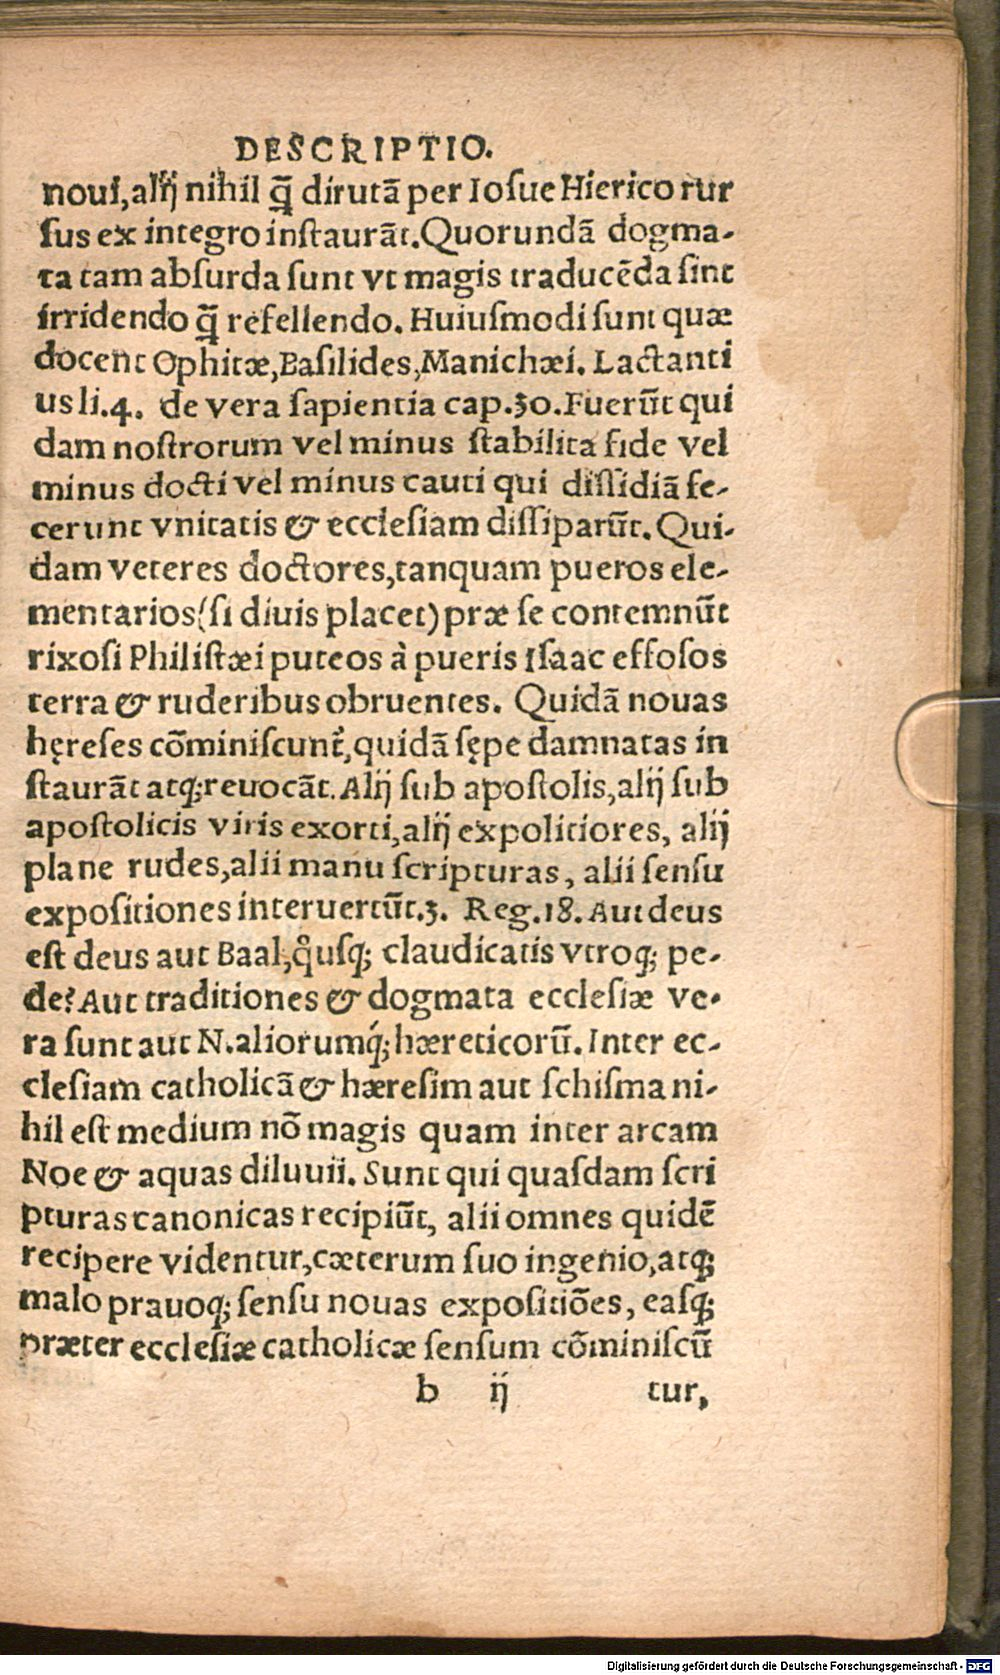 DESCRIPTIO.
noui, alĳ nihil q̃ dirutã per Ioſue Hierico rur
ſus ex integro inſtaurãt. Quorundã dogma-
ta tam abſurda ſunt vt magis traducẽda ſint
irridendo q̃ refellendo. Huiuſmodi ſunt quæ
docent Ophitæ, Baſilides, Manichæi. Lactanti
us li.4. de vera ſapientia cap.30. Fuerũt qui
dam noſtrorum vel minus ſtabilita fide vel
minus docti vel minus cauti qui diſſidiã fe-
cerunt vnitatis & eccleſiam diſſiparũt. Qui-
dam veteres doctores, tanquam pueros ele-
mentarios (ſi diuis placet) præ ſe contemnũt
rixoſi Philiſtæi puteos à pueris Iſaac effoſos
terra & ruderibus obruentes. Quidã nouas
hęreſes cõminiſcunt᷑, quidã ſępe damnatas in
ſtaurãt atq; reuocãt. Alĳ ſub apoſtolis, alĳ ſub
apoſtolicis viris exorti, alĳ expolitiores, alĳ
plane rudes, alii manu ſcripturas, alii ſenſu
expoſitiones interuertũt. 3. Reg. 18. Aut deus
eſt deus aut Baal, qͦuſq; claudicatis vtroq; pe-
de? Aut traditiones & dogmata eccleſiæ ve-
ra ſunt aut N. aliorumq́; hæreticorũ. Inter ec-
cleſiam catholicã & hæreſim aut ſchiſma ni-
hil eſt medium nõ magis quam inter arcam
Noe & aquas diluuii. Sunt qui quaſdam ſcri
pturas canonicas recipiũt, alii omnes quidẽ
recipere videntur, cæterum ſuo ingenio, atq;
malo prauoq; ſenſu nouas expoſitiões, eaſq;
præter eccleſiæ catholicæ ſenſum cõminiſcũ
b ĳ tur,
Digitalisierung gefördert durch die Deutsche Forschungsgemeinschaft - DFG